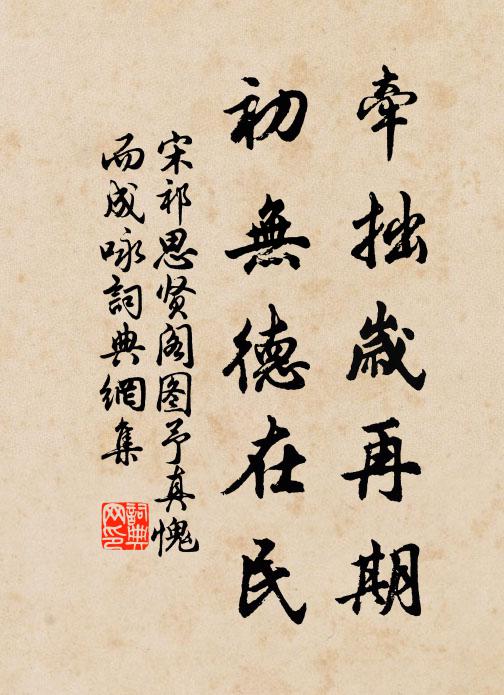 牽拙歲再期
初無德在民
宋祁思贤阁图予真愧
而成咏詞典網集
詞典网印